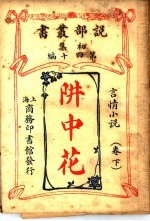 說部叢書
初集
第四十編
言情小說
阱中花
(卷下)
上海商務印書館發行